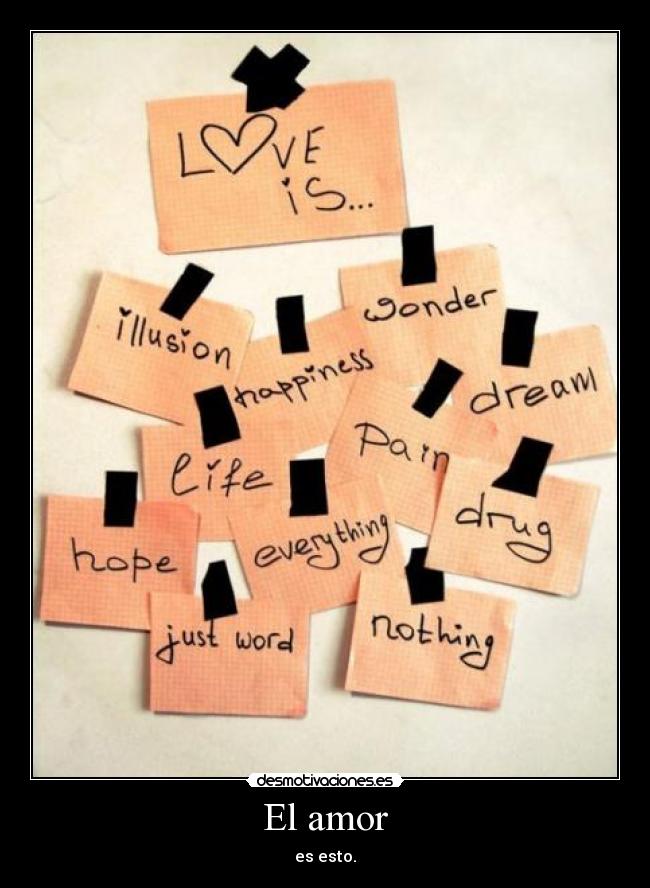 L♡VE
is...
illusion
happiness
wonder
dream
life
Pain
drug
hope
everything
just word
nothing
desmotivaciones.es
El amor
es esto.